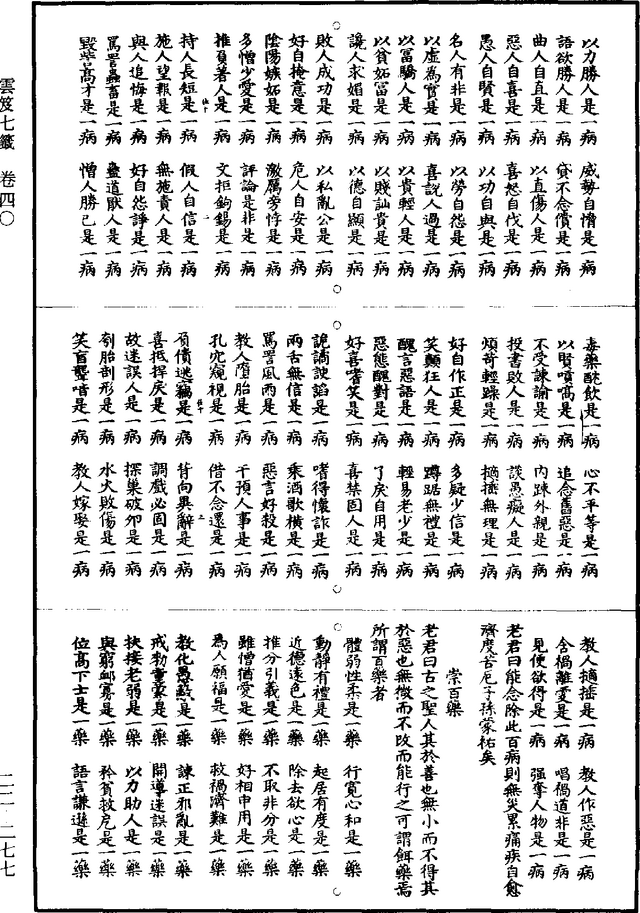 以力勝人是一病 威勢自愶是一病
語欲勝人是一病 貸不念償是一病
曲人自直是一病 以直傷人是一病
惡人自喜是一病 喜怒自伐是一病
愚人自賢是一病 以功自與是一病
名人有非是一病 以勞自怨是一病
以虛為實是一病 喜說人過是一病
以富驕人是一病 以貴輕人是一病
以貧妬富是一病 以賤訕貴是一病
讒人求媚是一病 以德自顯是一病
敗人成功是一病 以私亂公是一病
好自掩意是一病 危人自安是一病
陰陽嫉妬是一病 激厲旁悖是一病
多憎少愛是一病 評論是非是一病
推負著人是一病 文拒鉤錫是一病
持人長短是一病 假人自信是一病
施人望報是一病 無施責人是一病
與人追悔是一病 好自怨諍是一病
罵詈蟲畜是一病 蠱道厭人是一病
毀訾高才是一病 憎人勝己是一病
毒藥酖飲是一病 心不平等是一病
以賢嗊嗃是一病 追念舊惡是一病
不受諫諭是一病 內踈外親是一病
投書敗人是一病 談愚癡人是一病
煩苛輕躁是一病 擿捶無理是一病
好自作正是一病 多疑少信是一病
笑顛狂人是一病 蹲踞無禮是一病
醜言惡語是一病 輕易老少是一病
惡態醜對是一病 了戾自用是一病
好喜嗜笑是一病 喜禁固人是一病
詭譎諛諂是一病 嗜得懷詐是一病
兩舌無信是一病 乘酒歌橫是一病
罵詈風雨是一病 惡言好殺是一病
教人墮胎是一病 干預人事是一病
孔穴窺視是一病 借不念還是一病
負債逃竊是一病 背向異辭是一病
喜抵捍戾是一病 調戲必固是一病
故迷誤人是一病 探巢破卵是一病
刳胎剖形是一病 水火敗傷是一病
笑盲聾喑是一病 教人嫁娶是一病
教人擿捶是一病 教人作惡是一病
含禍離愛是一病 唱禍道非是一病
見便欲得是一病 强奪人物是一病
老君曰能念除此百病則無災累痛疾自愈
濟度苦厄子孫蒙祐矣
崇百藥
老君曰古之聖人其於善也無小而不得其
於惡也無微而不改而能行之可謂餌藥焉
所謂百藥者
體弱性柔是一藥 行寬心和是一藥
動靜有禮是一藥 起居有度是一藥
近德遠色是一藥 除去欲心是一藥
推分引義是一藥 不取非分是一藥
雖憎猶愛是一藥 好相申用是一藥
為人願福是一藥 救禍濟難是一藥
教化愚蔽是一藥 諫正邪亂是一藥
戒勑童蒙是一藥 開導迷誤是一藥
扶接老弱是一藥 以力助人是一藥
與窮卹寡是一藥 矜貧救厄是一藥
位高下士是一藥 語言謙遜是一藥
雲笈七籤 卷四〇
二二—二七七